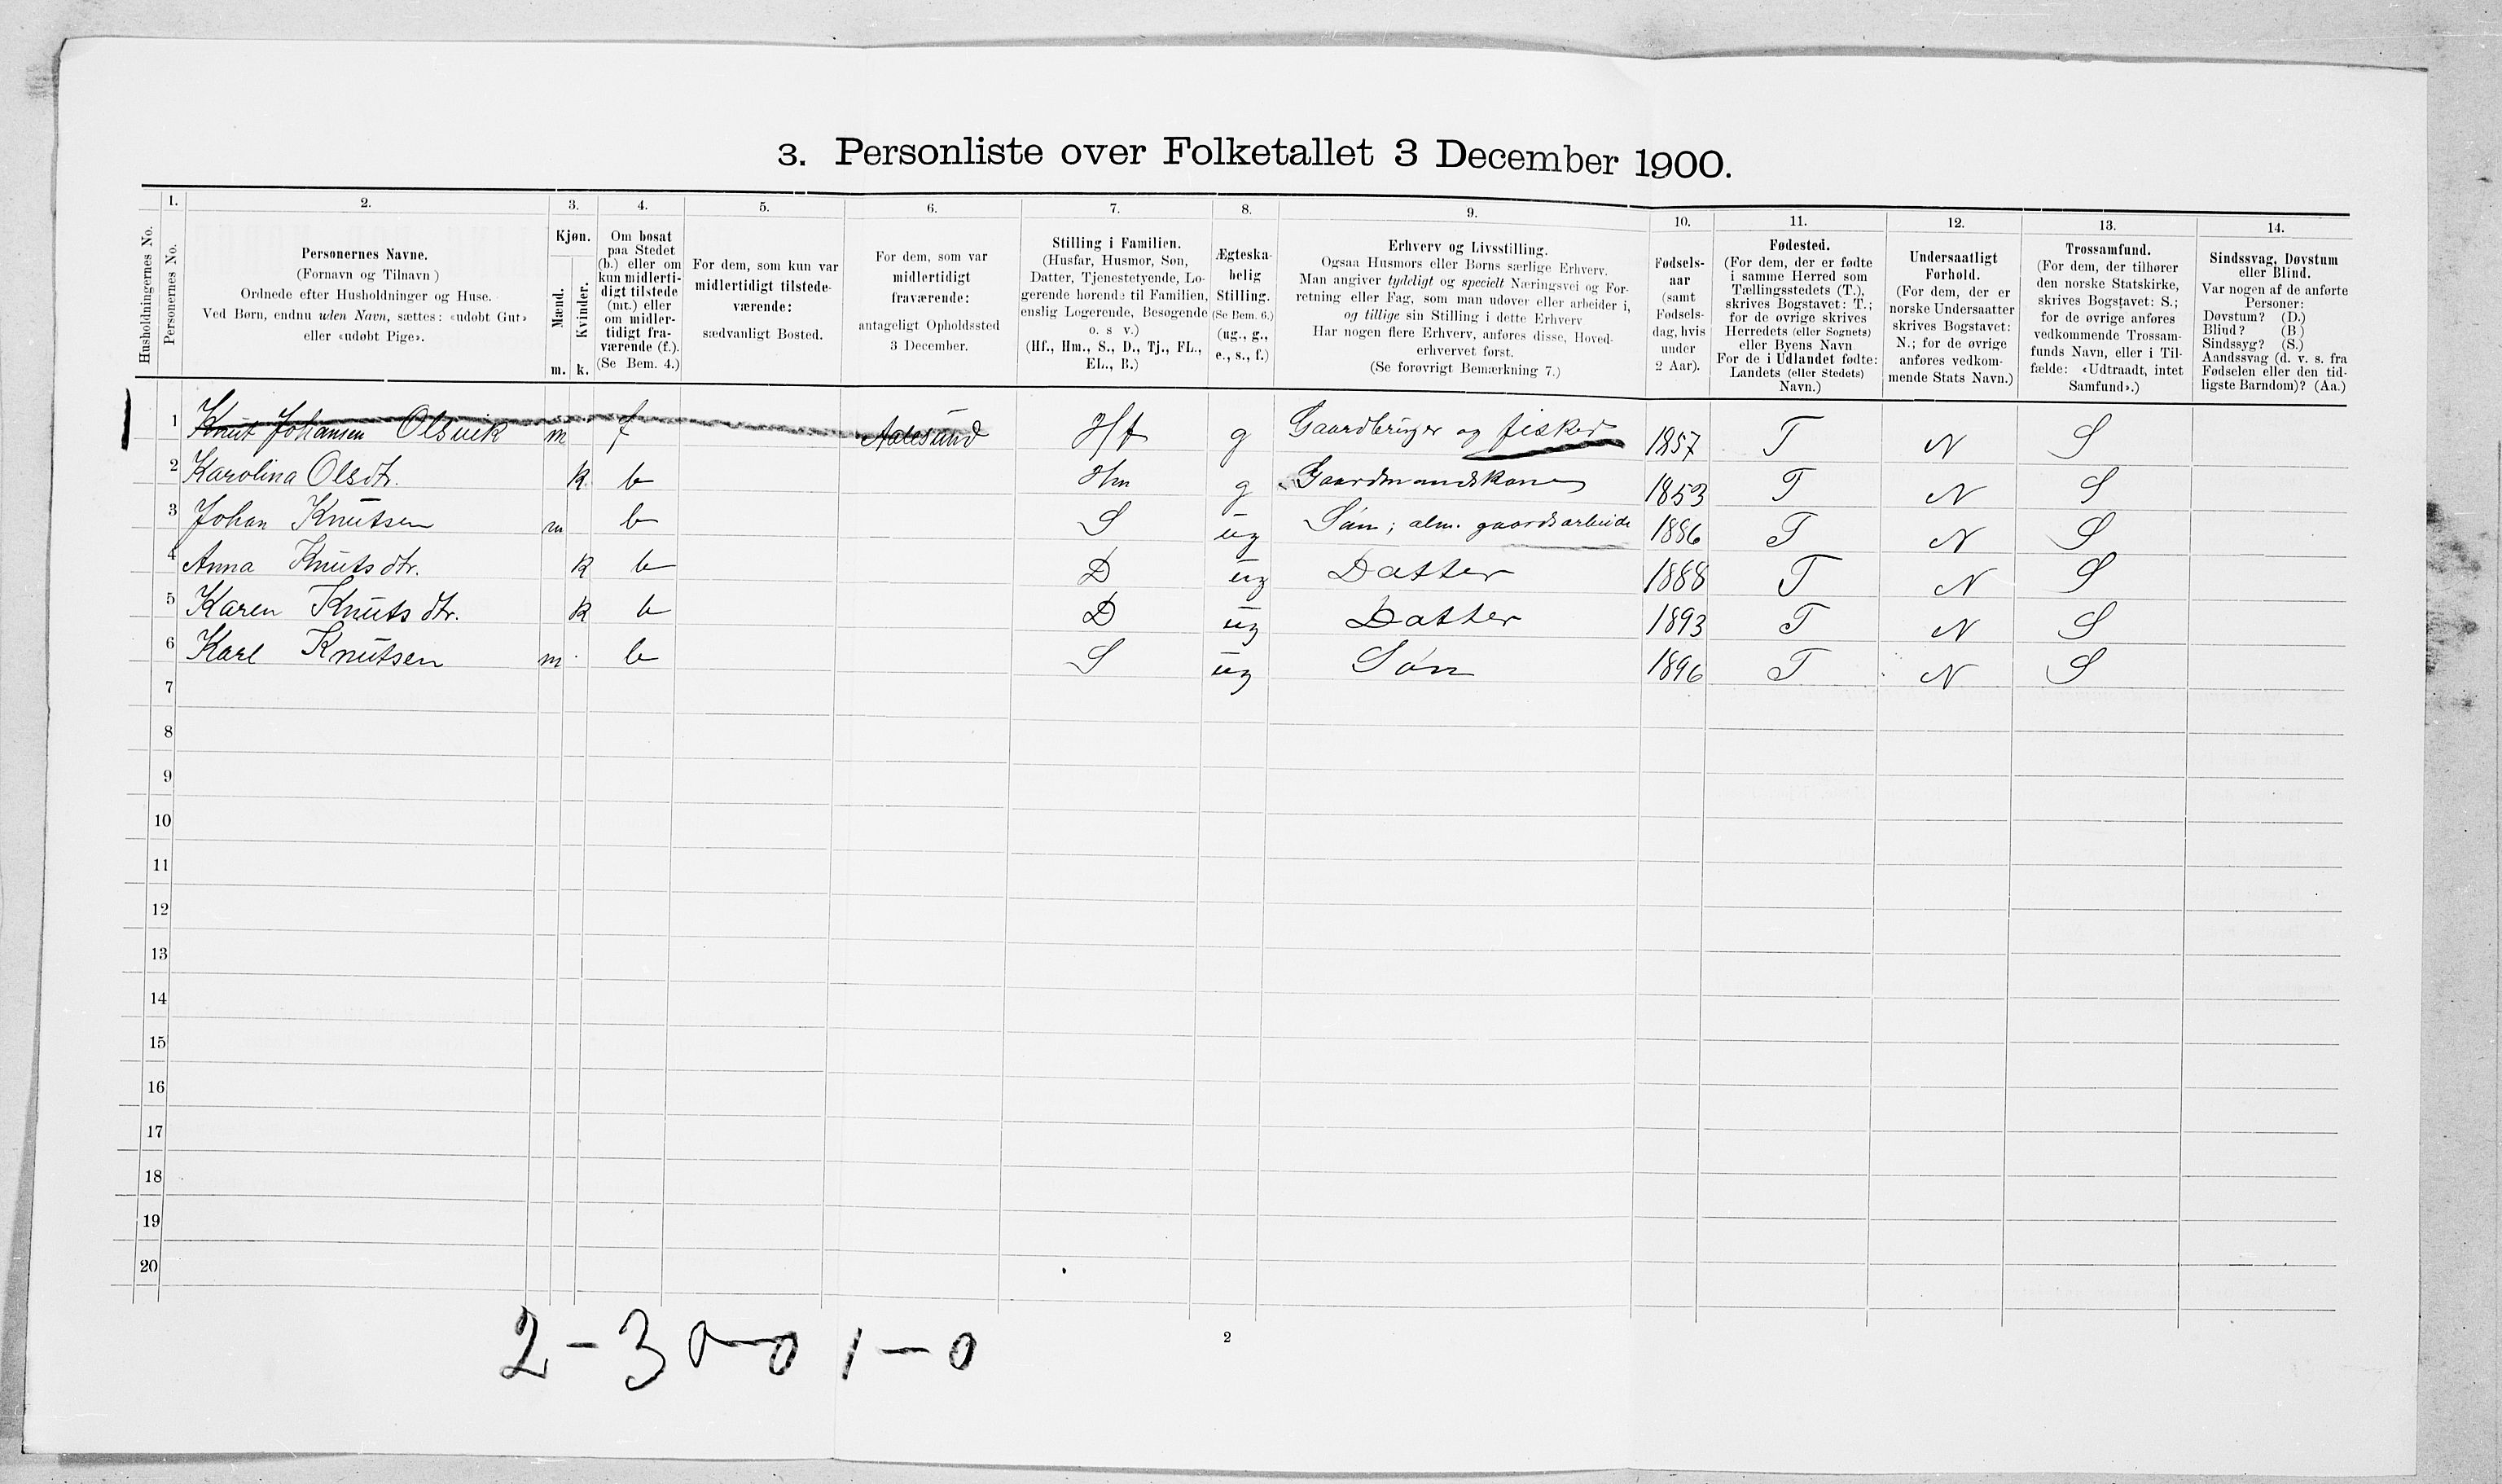 3. Personliste over Folketallet 3 December 1900.
Husholdningernes No.
1.
Personernes No.
2.
Personernes Navne.
(Fornavn og Tilnavn)
Ordnede efter Husholdninger og Huse.
Ved Børn, endnu uden Navn, sættes: «udøbt Gut»
eller «udøbt Pige».
3.
Kjøn.
Mænd.
Kvinder.
m. k.
4.
Om bosat
paa Stedet
(b.) eller om
kun midlerti-
digt tilstede
(mt.) eller
om midler-
tidigt fra-
værende (f.).
(Se Bem. 4.)
5.
For dem, som kun var
midlertidigt tilstede-
værende:
sædvanligt Bosted.
6.
For dem, som var
midlertidigt
fraværende:
antageligt Opholdssted
3 December.
7.
Stilling i Familien.
(Husfar, Husmor, Søn,
Datter, Tjenestetyende, Lo-
gerende hørende til Familien,
enslig Logerende, Besøgende
o. s v.)
(Hf., Hm., S., D., Tj., FL.,
EL., B.)
8.
Ægteska-
belig
Stilling.
(Se Bem. 6.)
(ug., g.,
e., s., f.)
9.
Erhverv og Livsstilling.
Ogsaa Husmors eller Børns særlige Erhverv.
Man angiver tydeligt og specielt Næringsvei og For-
retning eller Fag, som man udøver eller arbeider i,
og tillige sin Stilling i dette Erhverv
Har nogen flere Erhverv, anføres disse, Hoved-
erhvervet først.
(Se forøvrigt Bemærkning 7.)
10.
Fødsels-
aar
(samt
Fødsels-
dag, hvis
under
2 Aar).
11.
Fødested.
(For dem, der er fødte
i samme Herred som
Tællingsstedets (T.),
skrives Bogstavet: T.;
for de øvrige skrives
Herredets (eller Sognets)
eller Byens Navn
For de i Udlandet fødte:
Landets (eller Stedets)
Navn.)
12.
Undersaatligt
Forhold.
(For dem, der er
norske Undersaatter
skrives Bogstavet:
N.; for de øvrige
anføres vedkom-
mende Stats Navn.)
13.
Trossamfund.
(For dem, der tilhører
den norske Statskirke,
skrives Bogstavet: S.;
for de øvrige anføres
vedkommende Trossam-
funds Navn, eller i Til-
fælde: «Udtraadt, intet
Samfund».)
14.
Sindssvag, Døvstum
eller Blind.
Var nogen af de anførte
Personer:
Døvstum? (D.)
Blind? (B)
Sindssyg? (S.)
Aandssvag (d. v. s. fra
Fødselen eller den tid-
ligste Barndom)? (Aa.)
1 Knut Johansen Olsvik m f Aalesund Hf g Gaardbruger og fisker 1857 T N S
2 Karolina Olsdt. k b Hm g Gaardmandskone 1853 T N S
3 Johan Knutsen m b S ug Søn; alm. gaardsarbeide 1886 T N S
4 Anna Knutsdtr. k b D ug Datter 1888 T N S
5 Karen Knutsdtr. k b D ug Datter 1893 T N S
6 Karl Knutsen m b S ug Søn 1896 T N S
7
8
9
10
11
12
13
14
15
16
17
18
19
20
2 - 3 0 - 0 1 - 0
2